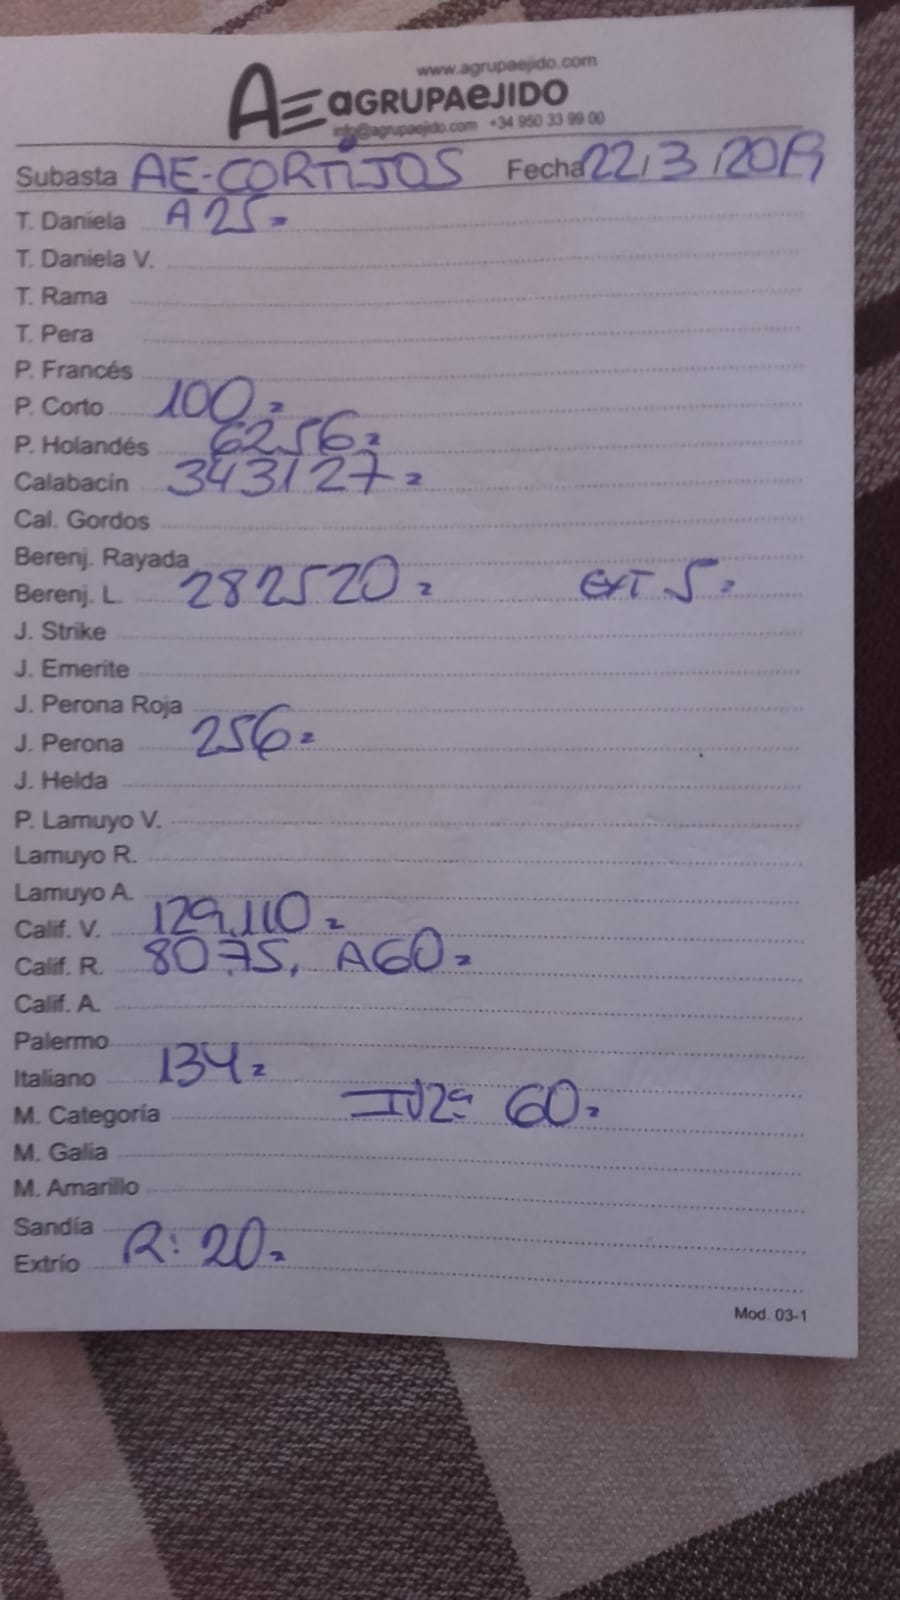 www.agrupaejido.com
AE aGRUPAeJIDO
info@agrupaejido.com +34 950 33 99 00
Subasta AE-CORTIJOS Fecha 22/3/2019
T. Daniela A 25=
T. Daniela V.
T. Rama
T. Pera
P. Francés
P. Corto 100=
P. Holandés 6256=
Calabacín 343127=
Cal. Gordos
Berenj. Rayada
Berenj. L. 282520= EXT 5=
J. Strike
J. Emerite
J. Perona Roja
J. Perona 256=
J. Helda
P. Lamuyo V.
Lamuyo R.
Lamuyo A.
Calif. V. 129,110=
Calif. R. 80,75, A60=
Calif. A.
Palermo
Italiano 134=
M. Categoría 60=
M. Galia
M. Amarillo
Sandía
Extrío R: 20=
Mod. 03-1